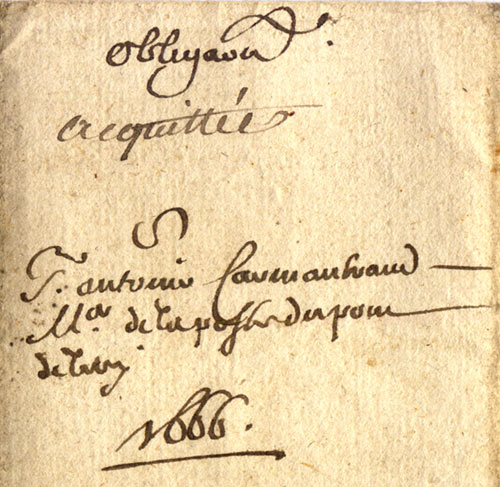 Obligaon
acquittée
S
Sr. antoine Carmantrand
Mre de la poste du pont
de
1666.